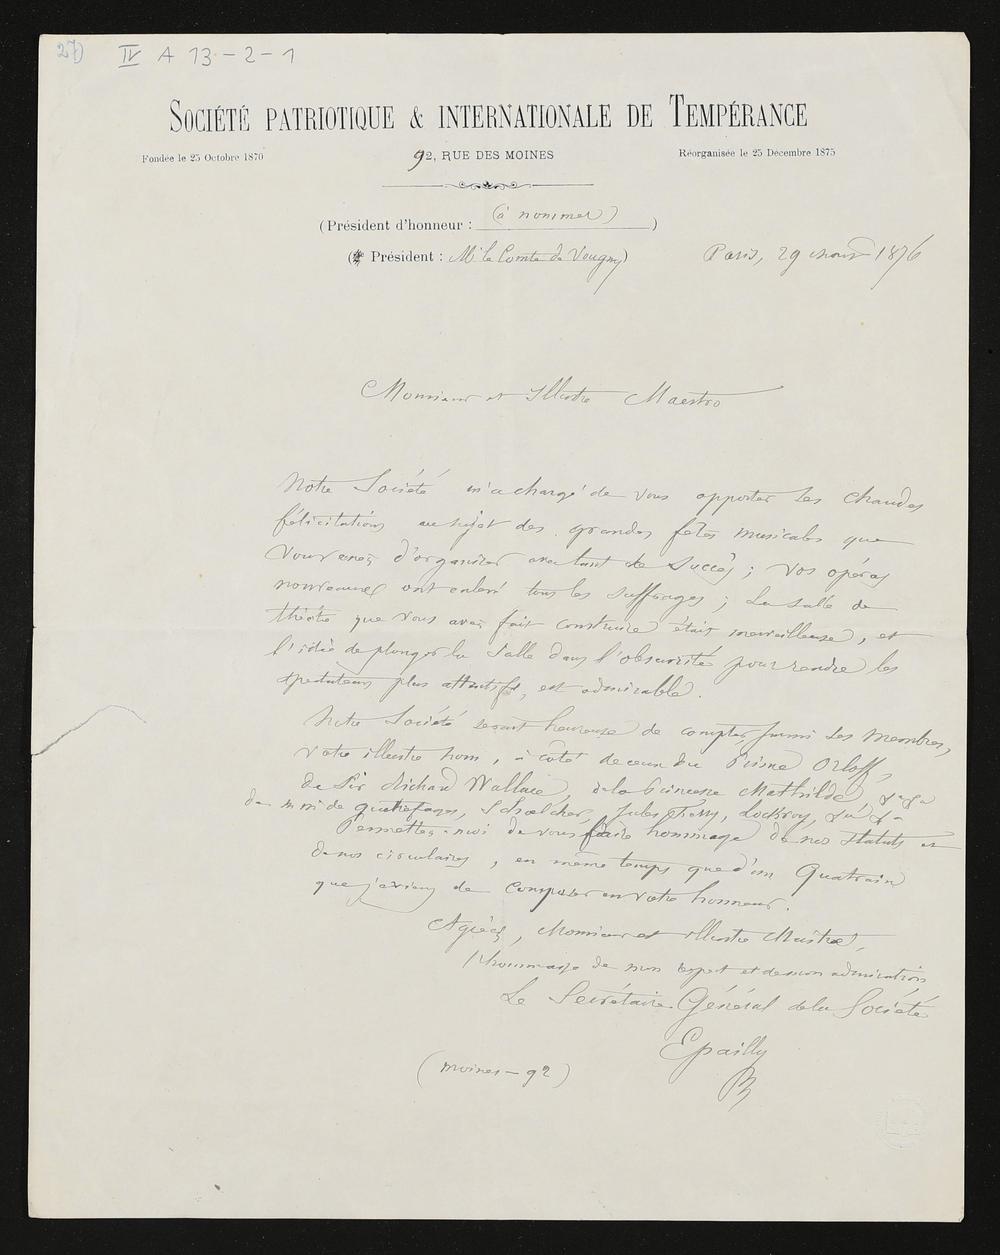 27) IV A 13-2-1
SOCIÉTÉ PATRIOTIQUE & INTERNATIONALE DE TEMPÉRANCE
Fondée le 25 Octobre 1870
92, RUE DES MOINES
Réorganisée le 25 Décembre 1875
(Président d'honneur : (à nommer) )
( Président : Mr le Comte de Vougny)
Paris, 29 août 1876
Monsieur et Illustre Maestro
Notre Société m'a chargé de vous apporter ses chaudes
félicitations au sujet des grandes fêtes musicales que
vous venez d'organiser avec tant de succès ; vos opéras
nouveaux ont enlevé tous les suffrages ; la salle de
théâtre que vous avez fait construire était merveilleuse, et
l'idée de plonger la salle dans l'obscurité pour rendre les
spectateurs plus attentifs, est admirable.
Notre Société serait heureuse de compter parmi ses membres,
votre illustre nom, à côté de ceux du Prince Orloff,
de Sir Richard Wallace, de la Princesse Mathilde,
de M M. de Quatrefages, Schoelcher, Jules Ferry, Lockroy,
Permettez-moi de vous faire hommage de nos statuts et
de nos circulaires, en même temps que d'un Quatrain
que je viens de composer en votre honneur.
Agréez, Monsieur et illustre Maître,
l'hommage de mon respect et de mon admiration
Le Secrétaire Général de la Société
Epailly
(Moines - 92)